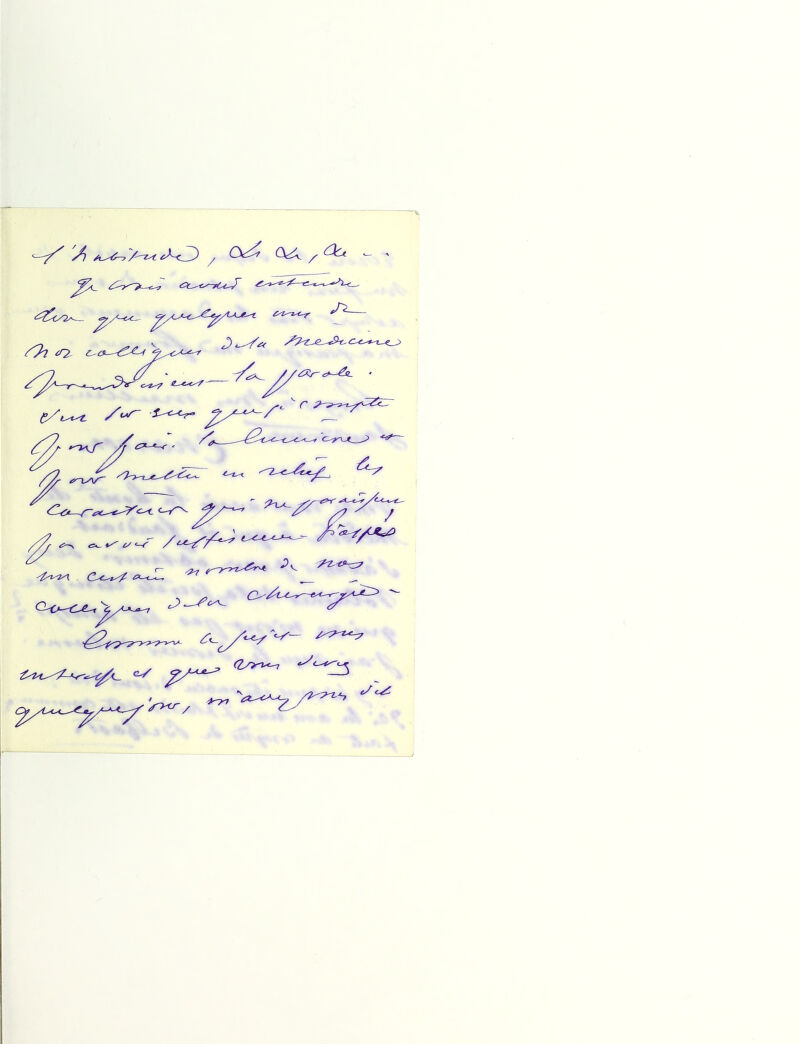 l'habitude, &c &c, &c - -
Je crois avoir entendu
dire que quelques uns de
nos collègues de la Médecine
prendroient la parole.
C'est sur eux que je compte
pour faire la lumière et
pour mettre en relief les
caractères qui ne paraissent
pas avoir suffisamment frappés
un certain nombre de nos
collègues de la chirurgie -
Comme le sujet vous
interesse et que vous
quelques jours, m'avez vous dit